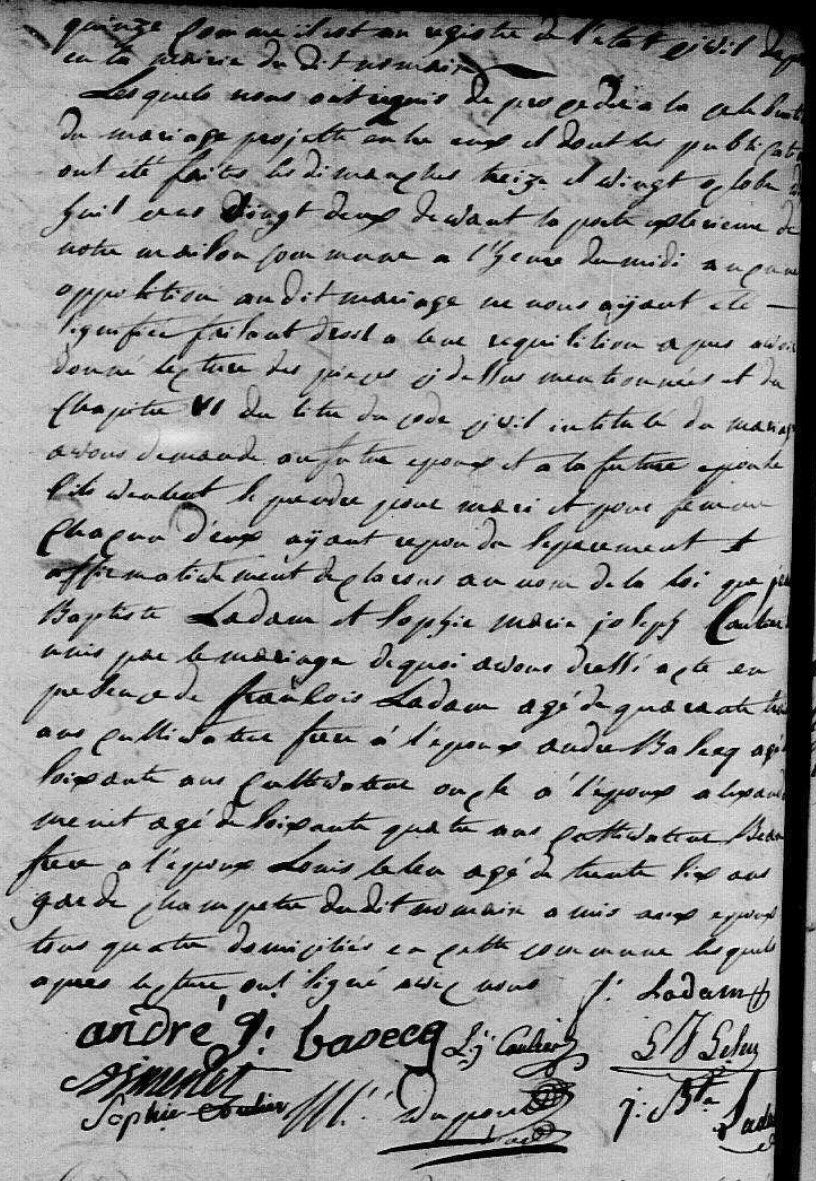 quinze comme il est au registre de l'etat civil depo
en la mairie du dit nomain
Lesquels nous ont requis de proceder a la celebrati
du mariage projetté entre eux et dont les publicati
ont été faites les dimanches treize et vingt octobre
huit cens vingt deux devant la porte exterieure de
notre maison commune a l'heure du midi aucune
opposition audit mariage ne nous ayant été
signifiée faisant droit a leur requisition apres avoir
donné lecture des pieces ci dessus mentionnées et du
chapitre VI du titre du code civil intitulé du mariage
avons demande au futur epoux et a la future epouse
s'ils veulent se prendre pour mari et pour femme
chacun d'eux ayant repondu separement et
affirmativement declarons au nom de la loi que jean
Baptiste Ladam et Sophie marie joseph Caulier
unis par le mariage de quoi avons dressé acte en
presence de françois Ladam agé de quarante trois
ans cultivateur frere à l'epoux andre Basecq agé
soixante ans cultivateur oncle à l'epoux alexand
menet agé de soixante quatre ans cultivateur Beau
frere a l'epoux Louis leleu agé de trente six ans
garde champetre dudit nomain amis aux epoux
tous quatre domiciliés en cette commune lesquels
apres lecture ont signé avec nous f: Ladam
andré j: basecq L: j: Caulier L J Leleu
menet
Sophie Caulier Dupont j: Bte Lada